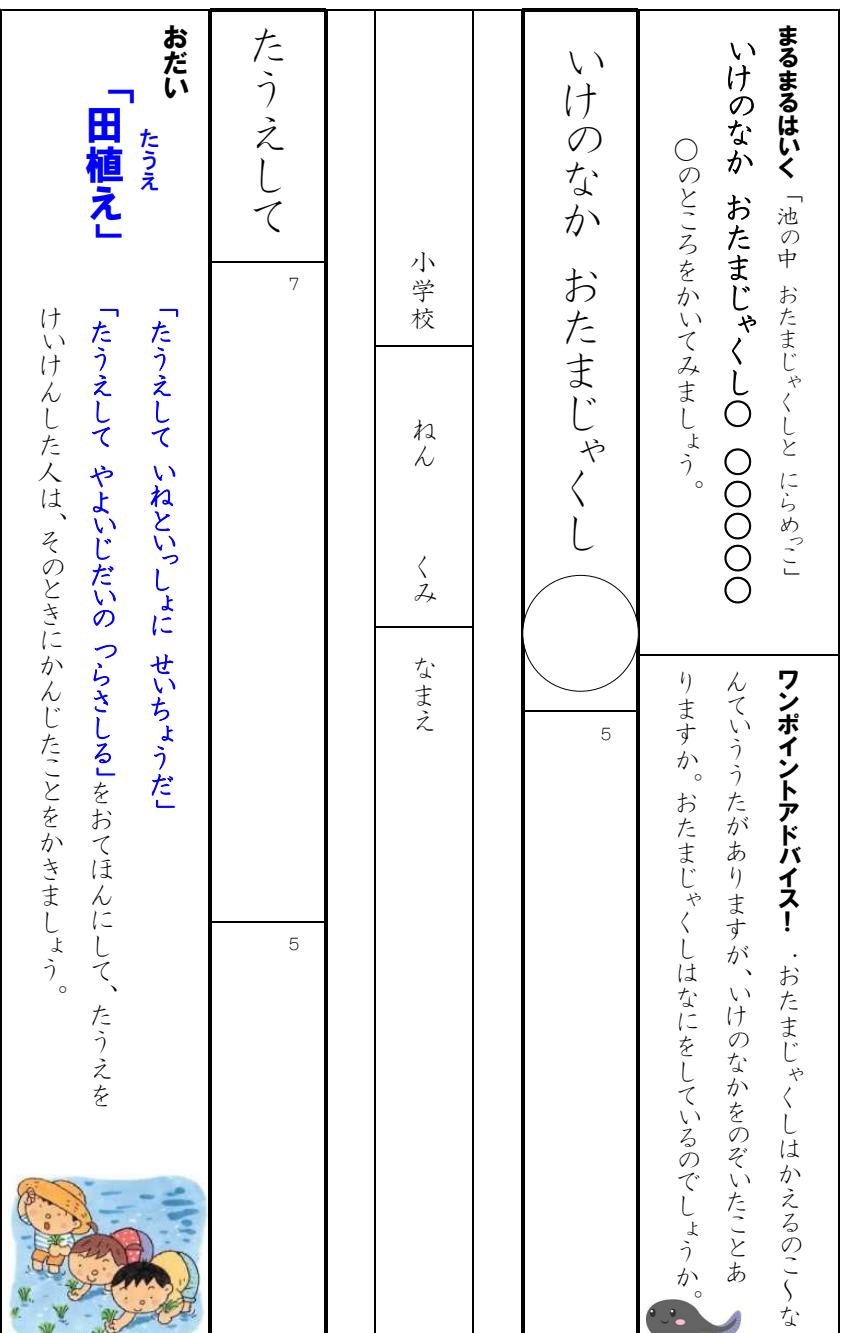 まるまるはいく 「池の中 おたまじゃくしと にらめっこ」
いけのなか おたまじゃくし〇 〇〇〇〇〇
〇のところをかいてみましょう。
ワンポイントアドバイス! ・おたまじゃくしはかえるのこ～な
んていううたがありますが、いけのなかをのぞいたことあ
りますか。おたまじゃくしはなにをしているのでしょうか。
いけのなか おたまじゃくし
5
小学校 ねん くみ なまえ
たうえして
7
5
おだい
たうえ
「田植え」
「たうえして いねといっしょに せいちょうだ」
「たうえして やよいじだいの つらさしる」をおてほんにして、たうえを
けいけんした人は、そのときにかんじたことをかきましょう。